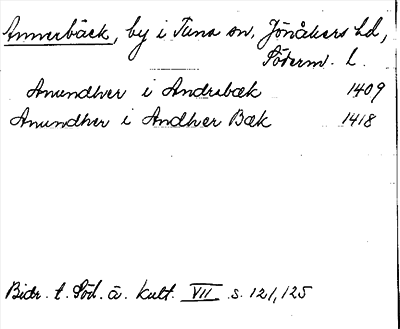 Annerbäck, by i Tuna sn, Jönåkers hd,
Söderm. l.
Anundher i Andrabæk 1409
Anundher i Andher Bæk 1418
Bidr. t. Söd. ä. kult. VII s. 121, 125